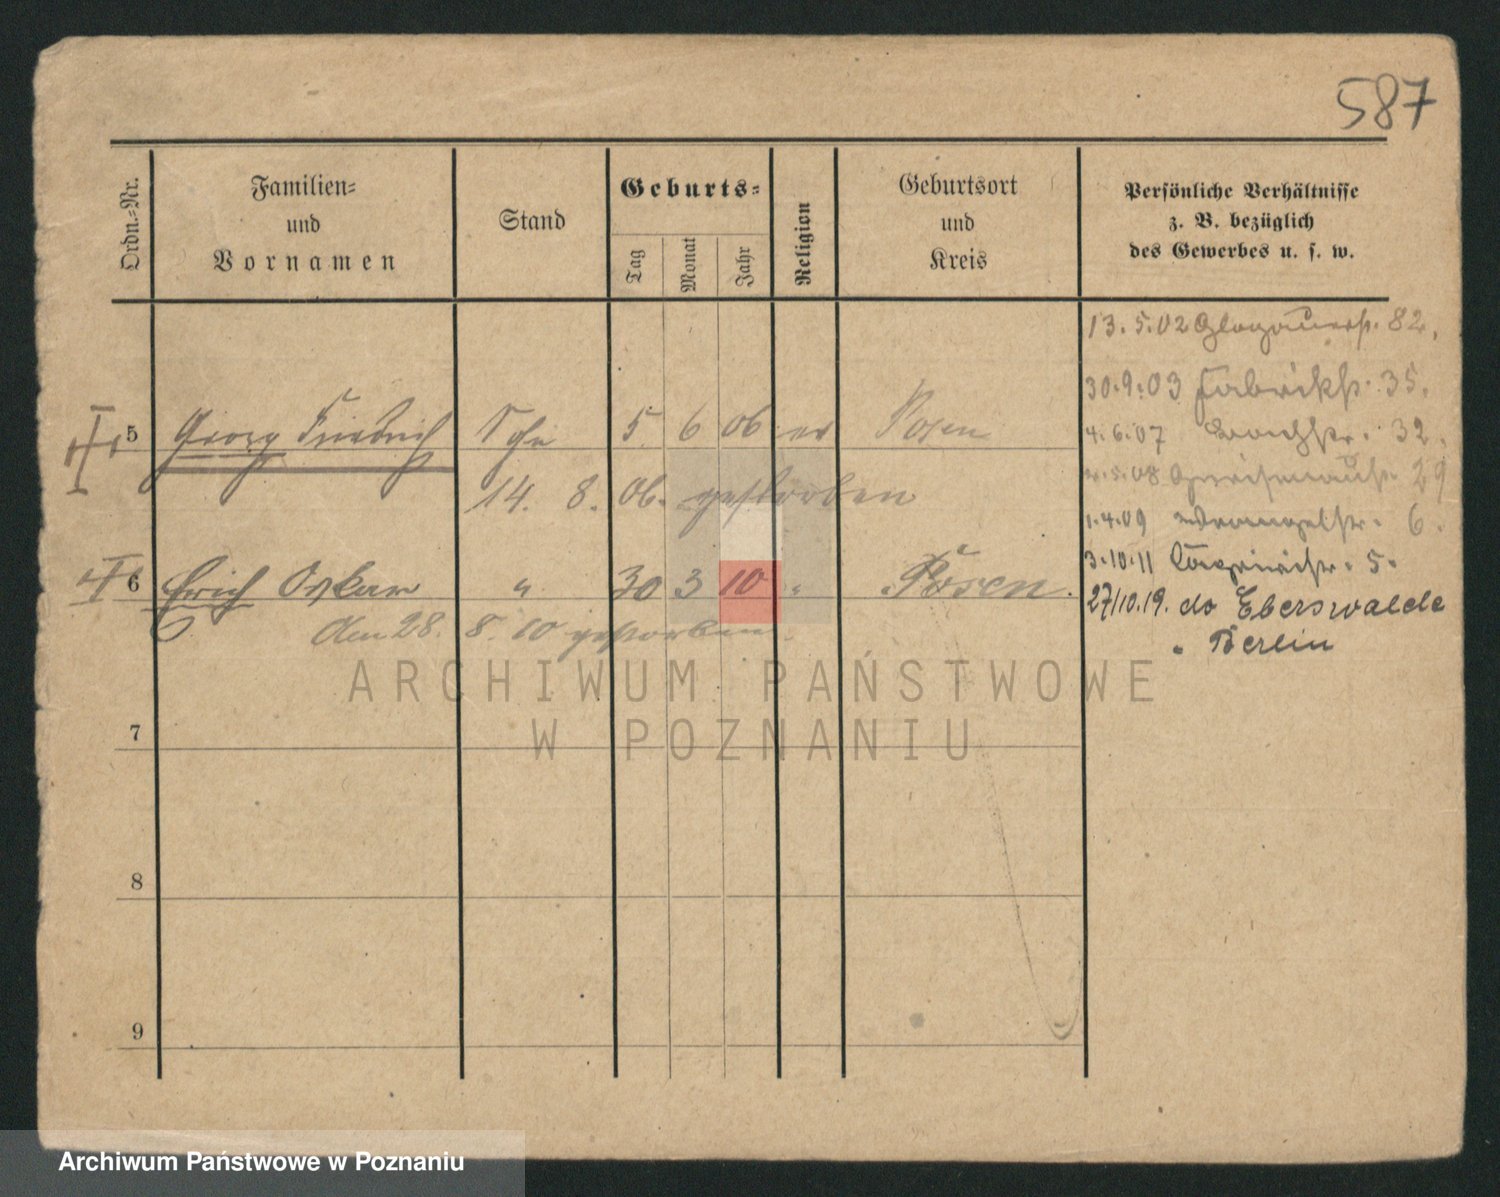 587
Ordn.-Nr.
Familien-
und
Vornamen
Stand
Geburts-
Tag
Monat
Jahr
Religion
Geburtsort
und
Kreis
Persönliche Verhältnisse
z. B. bezüglich
des Gewerbes u. s. w.
13.5.02 Glogauerst. 82.
30.9.03 Fabrikst. 35.
4.6.07 Bachstr. 32.
5.08 Gneisenaust. 29
1.4.09 Wrangelstr. 6.
3.10.11 5.
27/10.19. do Eberswalde
" Berlin
5 Georg Friedrich Sohn 5. 6 06 ev Posen
14. 8. 06. gestorben
6 Erich Oskar " 30 3 10 " Posen.
Am 28. 8. 10 gestorben.
7
8
9
ARCHIWUM PAŃSTWOWE
W POZNANIU
Archiwum Państwowe w Poznaniu